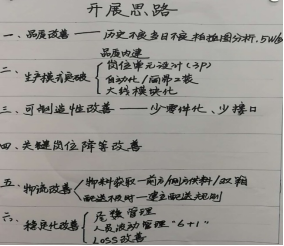 开展思路
一、品质改善——历史不良当日不良柏拉图分析.5W
品质内建
二、生产模式突破
岗位单元设计(3P)
自动化/简单工装
大线模块化
三、可制造性改善——少零件化、少接口
四、关键岗位降等改善
五、物流改善
物料获取—前方/侧方供料/双箱
配送及时—建立配送规则
六、稳定化改善
管理
人员波动管理"6+1"
Loss改善